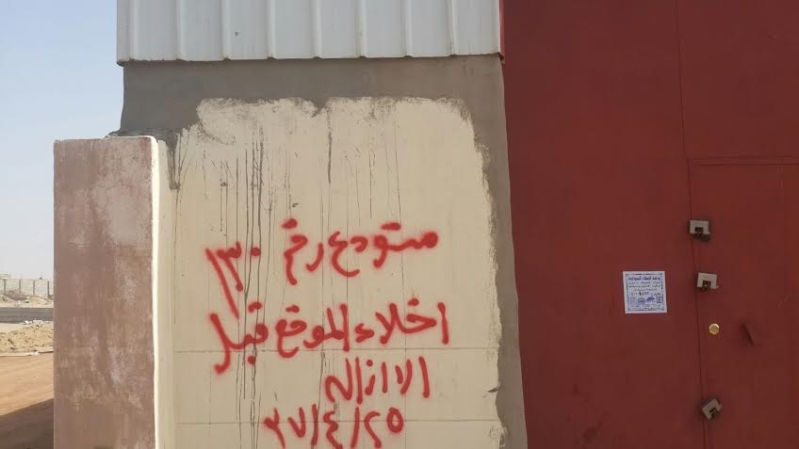 مستودع رقم ١٣٠
اخلاء الموقع قبل
الازاله
٢٥/٤/٣٧